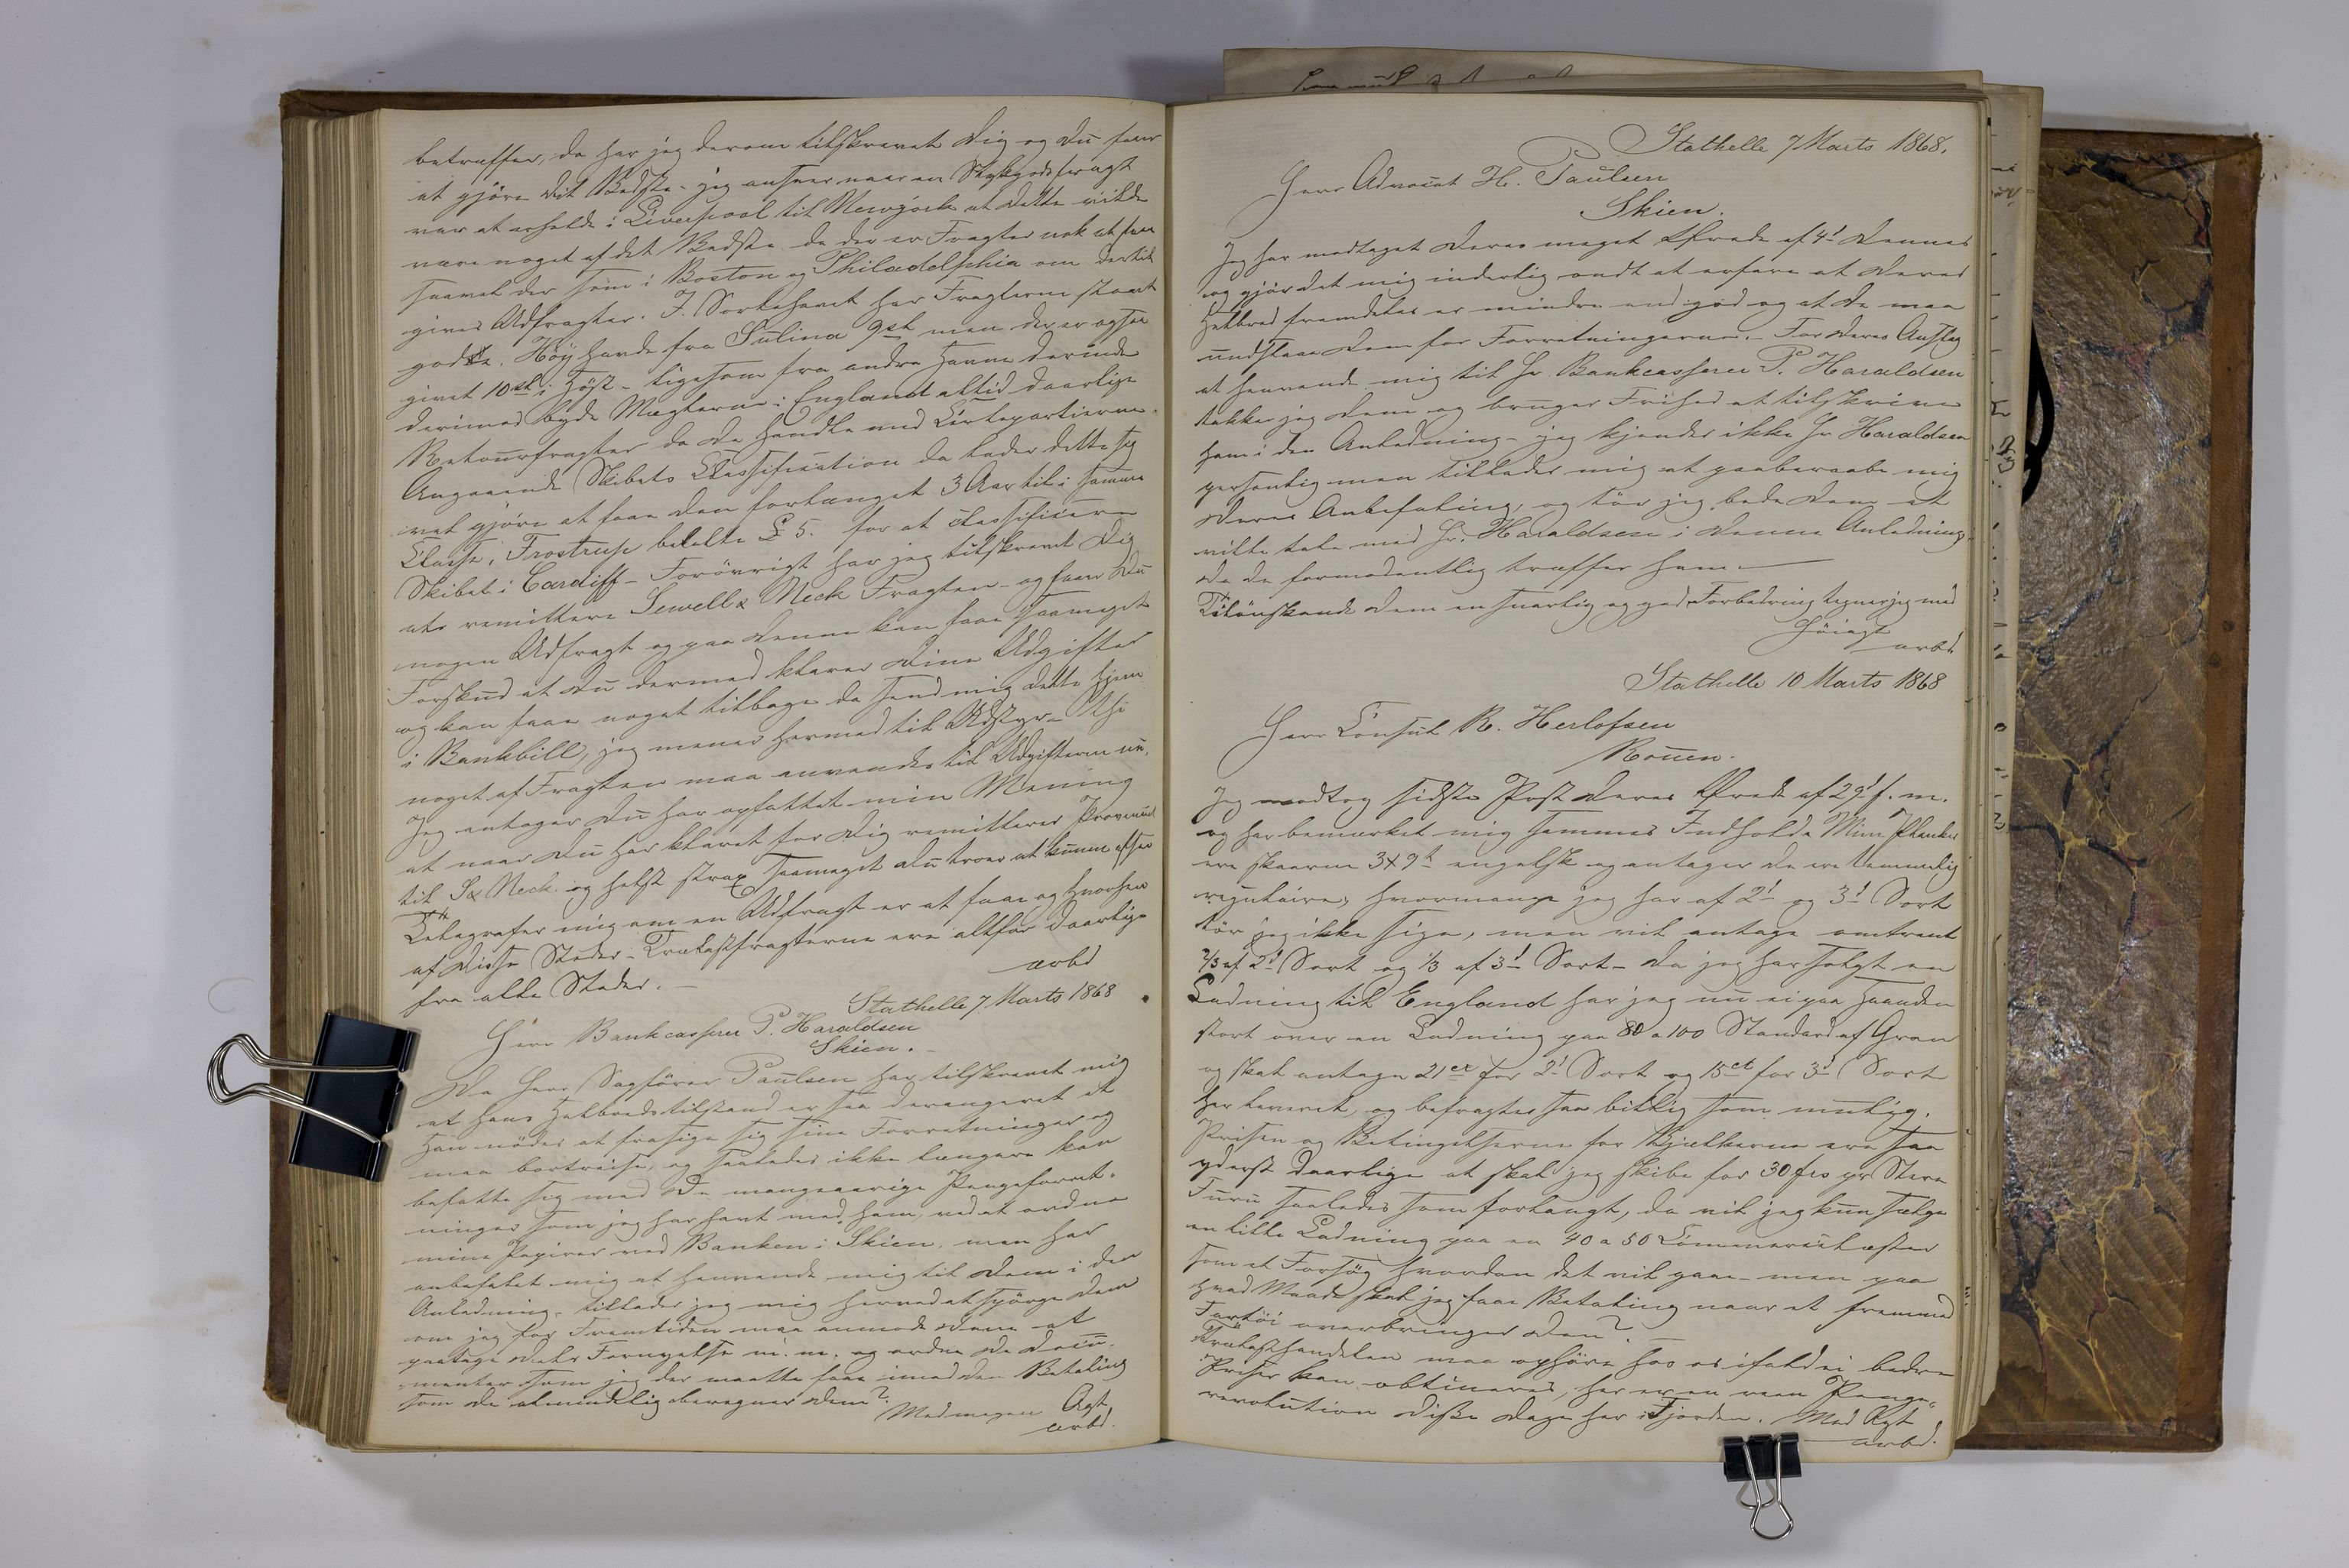 betræffer, da har jeg derom tilskrevet Dig og Du faar
at gjøre Dit Bedste - jeg anseer naar en Stykgodsfragt
var at erholde i Liverpool til Newyork at dette vilde
være noget af det Bedste da der er Fragter nok at faae
saavel der som i Boston og Philadelphia om dertil
gives Udfragter. I Sortehavet har Fragterne staaet
godt. Høy havde fra Sulina 9sh men der er ogsaa
givet 10sh i Høst - ligesom fra andre Havne derinde
derimod byde Mæglerne i England altid daarlige
Retourfragter da de handle med Certepartierne.
Angaaende Skibets Classification da lader dette sig
vel gjøre at faae den forlænget 3 Aar til i samme
Classe, Trostrup betalte £ 5. for at classificere
Skibet i Cardiff - Forøvrigt har jeg tilskrevet Dig
at remittere Sewell & Neck Fragten - og faaer Du
nogen Udfragt og paa denne kan faae saameget
Forskud at Du dermed klarer Dine Udgifter
og kan faae noget tilbage da send mig dette hjem
i Bankbill, jeg mener hermed til Udstyr - thi
noget af Fragten maa anvendes til Udgifterne nu.
Jeg antager Du har opfattet min Mening
at naar Du har klaret for Dig remitterer Provenuet
til S & Neck og helst strax saameget Du troer at kunne
Telegrafer mig om en Udfragt er at faae og hvorhen
af disse Steder - Trælastfragterne ere altfor daarlige
fra alle Steder. -
arbd
Stathelle 7 Marts 1868
Herr Bankcasserer P. Haraldsen
Skien.
Da Herr Sagfører Paulsen har tilskrevet mig
at hans Helbredstilstand er saa derangeret at
han nødes at frasige sig sine Forretninger og
maa bortreise, og saaledes ikke længere kan
befatte sig med de mangeaarige Pengeforret-
ninger som jeg har havt med ham, ved at ordne
mine Papirer ved Banken i Skien, men har
anbefalet mig at henvende mig til Dem i den
Anledning, tillader jeg mig herved at spørge Dem
om jeg for Fremtiden maa anmode Dem at
paatage Fornyelse m. m. og ordne de Docu-
menter som jeg der maatte have imod den Betaling
som De almindelig beregner Dem?
Med megen Agt
arbd.
Stathelle 7 Marts 1868.
Herr Advocat H. Paulsen
Skien.
Jeg har modtaget Deres meget ærede af 4d dennes
og gjør det mig inderlig ondt at erfare at Deres
Helbred fremdeles er mindre end god og at De maa
undslaae Dem for Forretningerne. - For Deres Anslag
at henvende mig til Hr. Bankcasserer P. Haraldsen
takker jeg Dem og bruger Frihed at tilskrive
ham i den Anledning - jeg kjender ikke Hr Haraldsen
personlig men tillader mig at paaberaabe mig
Deres Anbefaling, og tør jeg bede Dem at
ville tale med Hr. Haraldsen i denne Anledning
da De formodentlig træffer ham. -
Tilønskende Dem en snarlig og god Forbedring tegner jeg med
Høiagt
arbd
Stathelle 10 Marts 1868
Herr Consul R. Herlofsen
Rouen.
Jeg modtog sidste Post Deres Ærede af 29d f. m.
og har bemærket mig sammes Indhold. Mine Planker
ere skaarne 3x9" engelsk og antager de ere temmelig
regulaire, hvormange jeg har af 2d og 3d Sort
tør jeg ikke sige, men vil antage omtrent
2/3 af 2d Sort og 1/3 af 3d Sort - da jeg har solgt en
Ladning til England har jeg nu ei paa Haanden
stort over en Ladning paa 80 a 100 Standard af Gran
og skal antage 21 ct for 2d Sort og 15 ct for 3d Sort
her leveret, og befragter saa billig som mulig.
Prisen og Betingelserne for Bjelkerne ere saa
yderst daarlige at skal jeg skibe for 30 frcs pr Stere
Furu saaledes som forlangt, da vil jeg kun sælge
en lille Ladning paa en 40 a 50 Commercelæster
som et Forsøg hvordan det vil gaae - men paa
hvad Maade skal jeg faae Betaling naar et fremmed
Fartøi overbringer den? -
Trælasthandelen maa ophøre hos os ifald ei bedre
Priser kan obtineres, her er en reen Penge-
revolution disse Dage her i Fjorden. Med Agt
arbd.